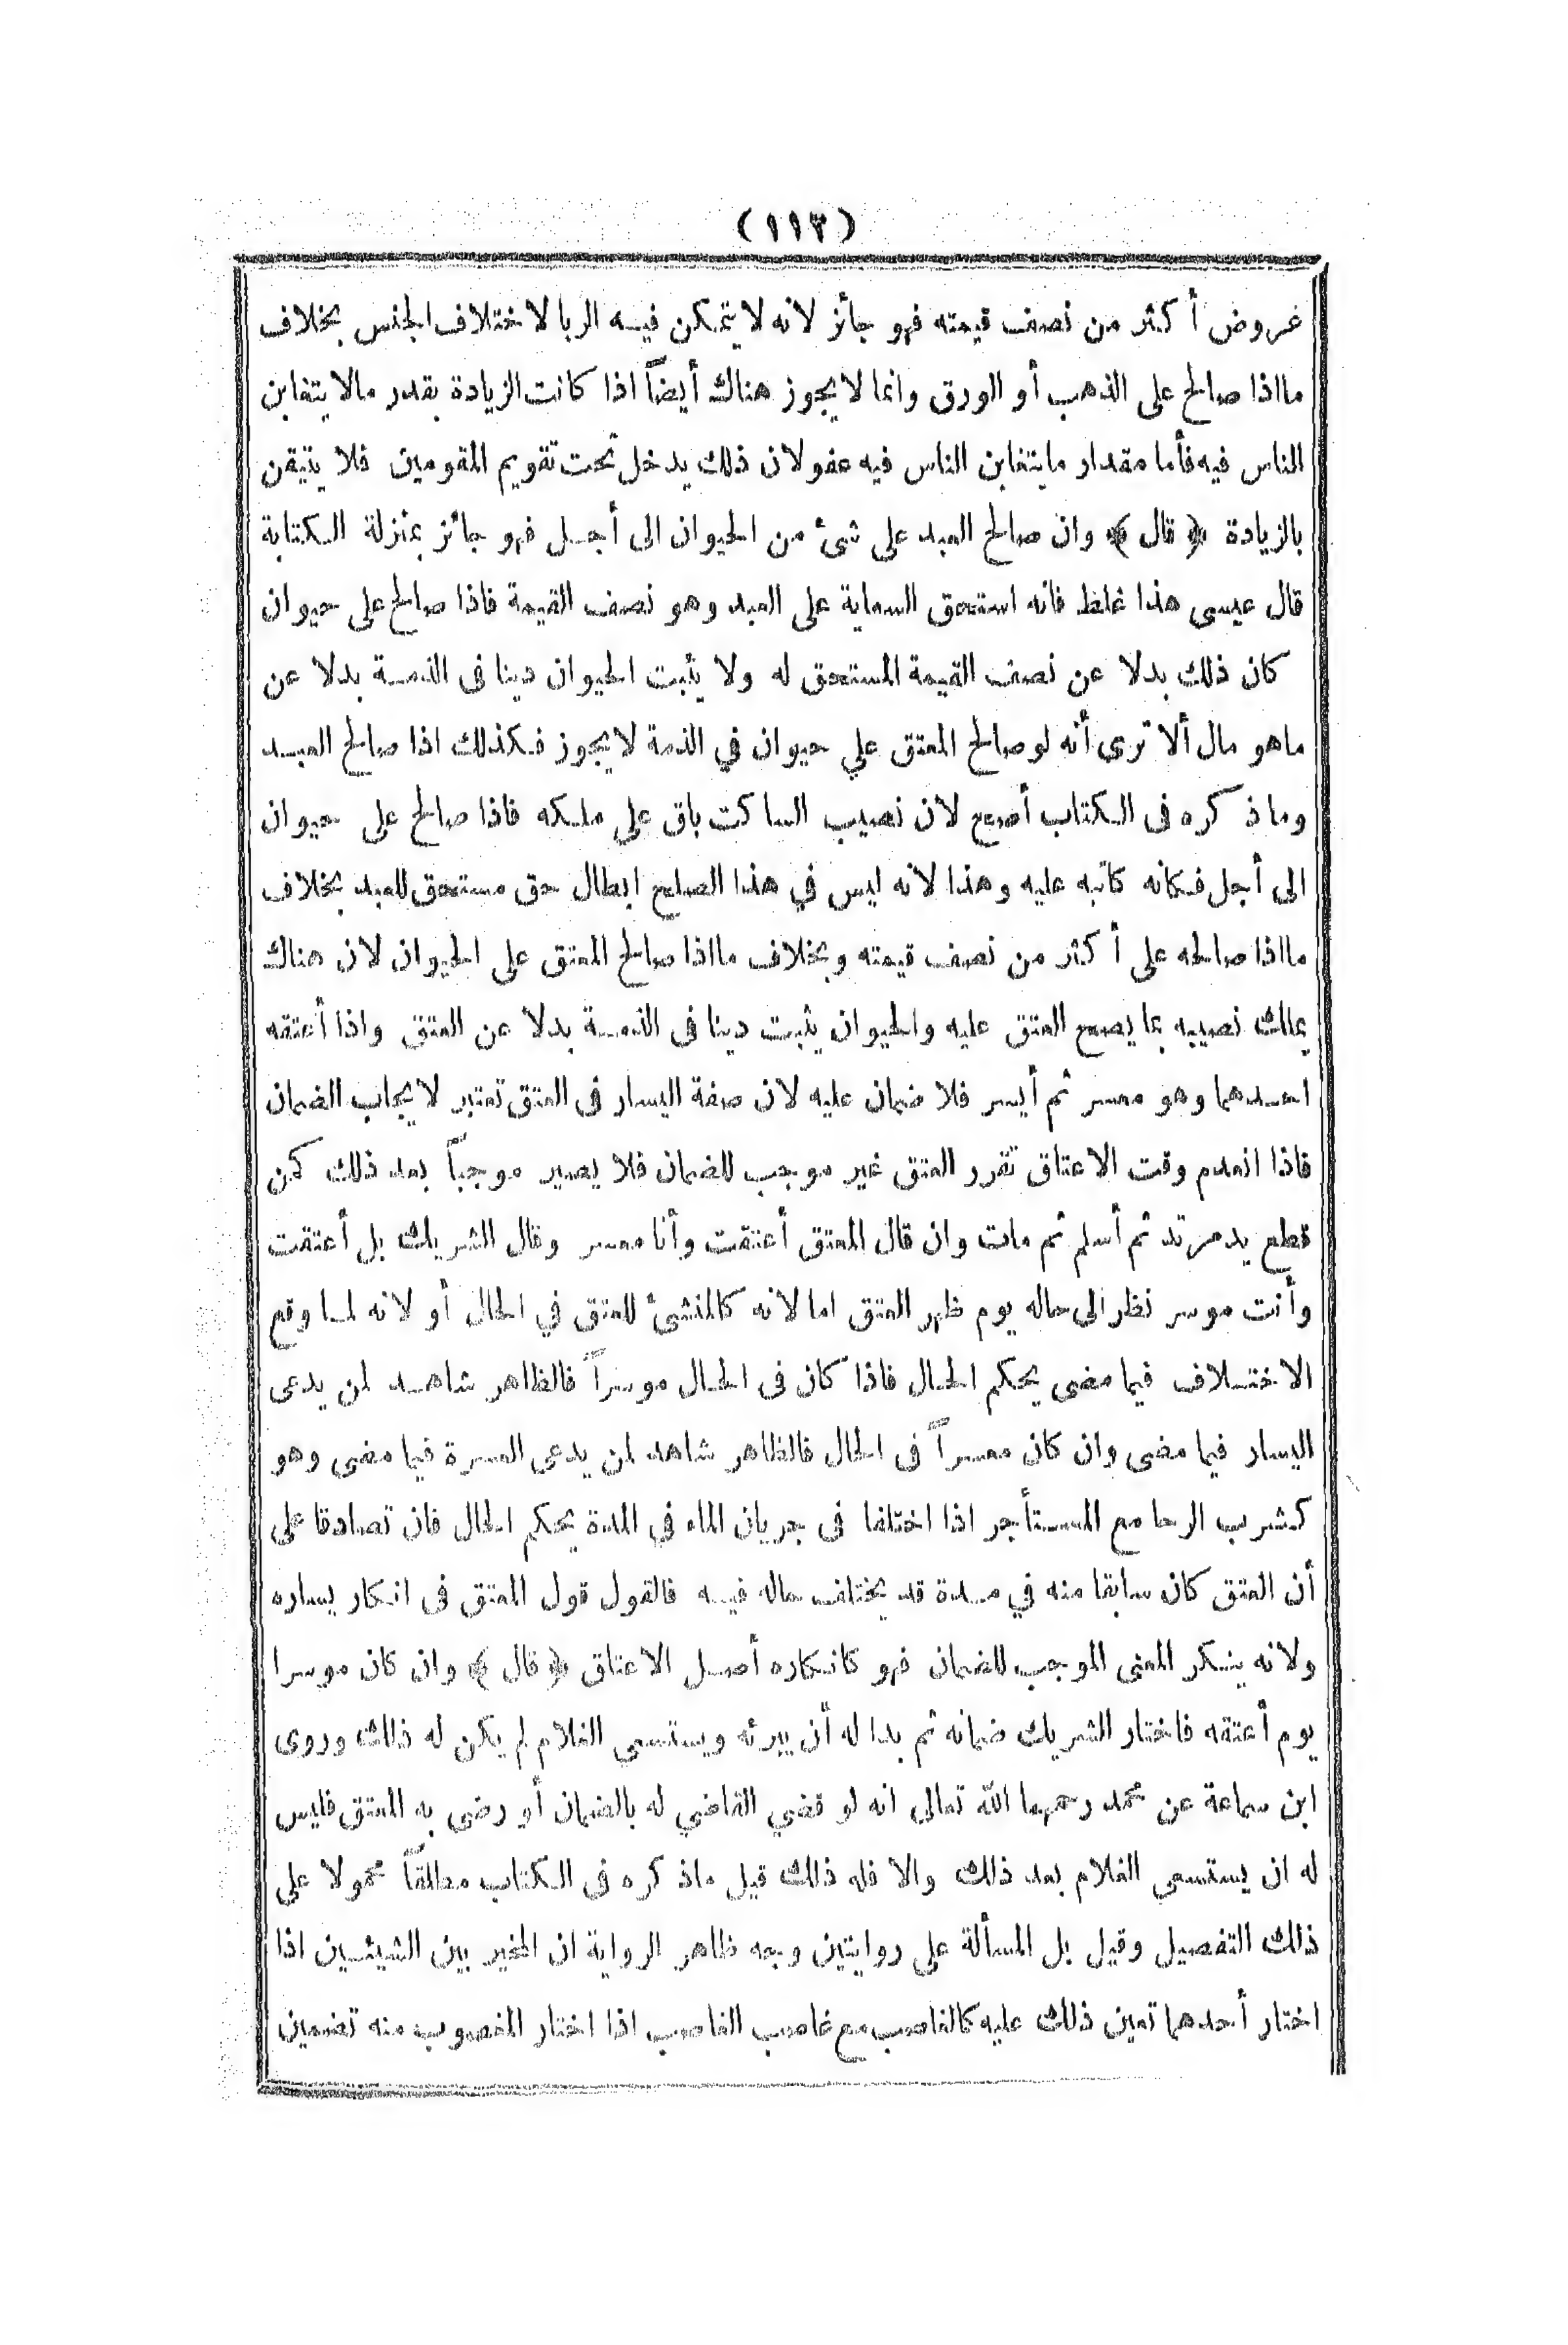 (١١٣)
عروض أكثر من نصف قيمته فهو جائز لانه لا يتمكن فيه الربا لاختلاف الجنس بخلاف
مااذا صالح على الذهب أو الورق وانما لا يجوز هناك أيضاً اذا كانت الزيادة بقدر مالا يتغابن
الناس فيه فأما مقدار مايتغابن الناس فيه عفو لان ذلك يدخل تحت تقويم المقومين فلا يتيقن
بالزيادة ﴿ قال ﴾ وان صالح العبد على شئ من الحيوان الى أجل فهو جائز بمنزلة الكتابة
قال عيسى هذا غلط فانه استحق السعاية على العبد وهو نصف القيمة فاذا صالح على حيوان
كان ذلك بدلا عن نصف القيمة المستحق له ولا يثبت الحيوان دينا فى الذمة بدلا عن
ماهو مال ألا ترى أنه لو صالح المعتق علي حيوان في الذمة لا يجوز فكذلك اذا صالح العبد
وما ذكره فى الكتاب أصح لان نصيب الساكت باق على ملكه فاذا صالح على حيوان
الى أجل فكانه كاتبه عليه وهذا لانه ليس في هذا الصلح ابطال حق مستحق للعبد بخلاف
مااذا صالحه على أكثر من نصف قيمته وبخلاف مااذا صالح المعتق على الحيوان لان هناك
يملك نصيبه بما يصح العتق عليه والحيوان يثبت دينا فى الذمة بدلا عن العتق واذا أعتقه
احدهما وهو معسر ثم أيسر فلا ضمان عليه لان صفة اليسار فى العتق تعتبر لا يجاب الضمان
فاذا انعدم وقت الاعتاق تقرر العتق غير موجب للضمان فلا يصير موجباً بعد ذلك كمن
قطع يد مرتد ثم أسلم ثم مات وان قال المعتق أعتقت وأنا معسر وقال الشريك بل أعتقت
وأنت موسر نظر الى حاله يوم ظهر العتق اما لانه كالمنشئ للعتق في الحال أو لانه لما وقع
الاختلاف فيما مضى يحكم الحال فاذا كان فى الحال موسراً فالظاهر شاهد لمن يدعى
اليسار فيما مضى وان كان معسراً فى الحال فالظاهر شاهد لمن يدعى العسرة فيما مضى وهو
كشرب الرحا مع المستأجر اذا اختلفا فى جريان الماء في المدة يحكم الحال فان تصادقا على
أن العتق كان سابقا منه في مدة قد يختلف حاله فيه فالقول قول المعتق فى انكار يساره
ولانه ينكر المعنى الموجب للضمان فهو كانكاره أصل الاعتاق ﴿ قال ﴾ وان كان موسرا
يوم أعتقه فاختار الشريك ضمانه ثم بدا له أن يبرئه ويستسعى الغلام لم يكن له ذلك وروى
ابن سماعة عن محمد رحمهما الله تعالى انه لو قضي القاضي له بالضمان أو رضى به المعتق فليس
له ان يستسعى الغلام بعد ذلك والا فله ذلك قيل ماذكره فى الكتاب مطلقاً محمولا على
ذلك التفصيل وقيل بل المسألة على روايتين وجه ظاهر الرواية ان المخير بين الشيئين اذا
اختار أحدهما تعين ذلك عليه كالغاصب مع غاصب الغاصب اذا اختار المغصوب منه تضمين